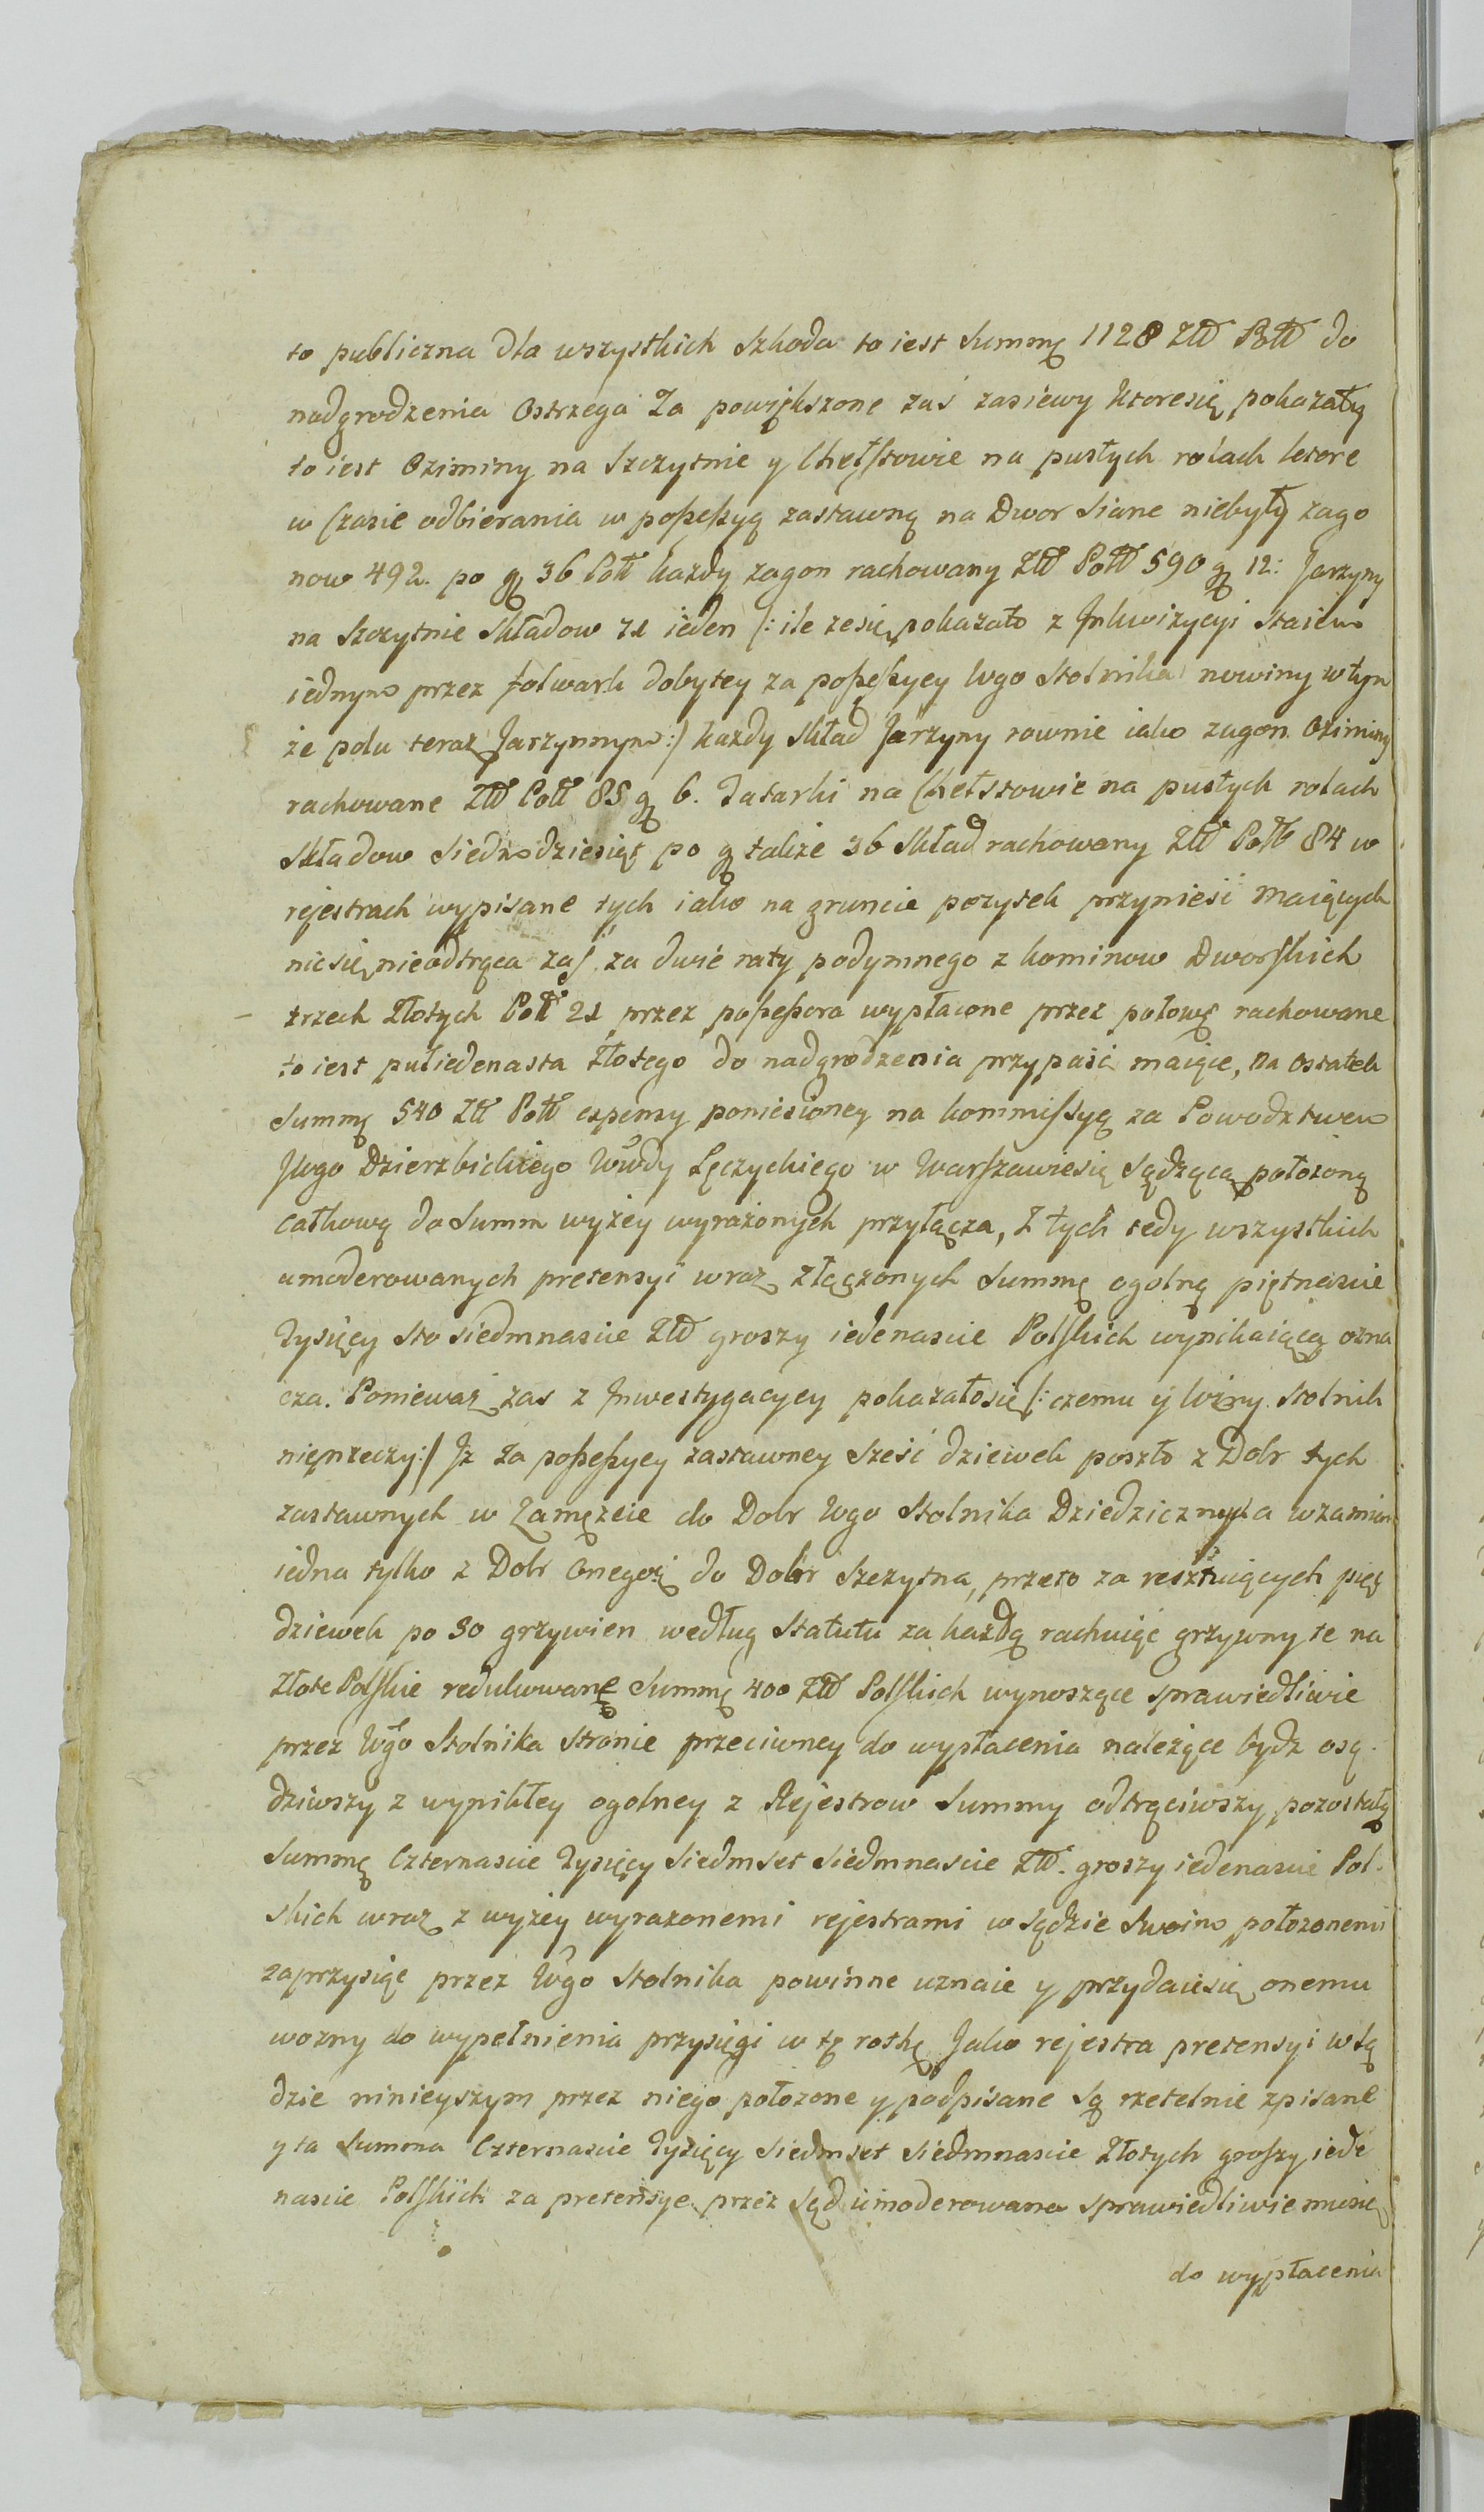 to publiczna dla wszystkich szkoda to iest Summę 1128 Złł Poll do
nadgrodzenia Ostrzega Za powiększone zaś zasiewy ktoresię pokazały
to iest Oziminy na Szczytnie y Chełstowie na pustych rolach ktore
w Czasie odbierania w possessyą zastawną na Dwor Siane niebyły zago
now 492. po gr 36 Poll każdy zagon rachowany Złł Polł 590 gr 12: Jarzyny
na Szczytnie Składow 71 ieden /: ile zesię pokazało z Inkwizycyi Staiem
iednym przez folwark dobytey za possessyey Wgo Stolnika nowiny wtym
że polu teraz Jarzynnym :/ każdy Skład Jarzyny rownie iako zagon Oziminy
rachowane Złł Poll 85 gr 6. Tatarki na Chełstowie na pustych rolach
Składow Siedmdziesiąt po gr także 36 Skład rachowany Złł Poll 84 w
rejestrach wypisane tych iako na gruncie pozytek przynieść maiących
nicsię nieodtrąca zaś za dwie raty podymnego z kominow Dworskich
trzech Złotych Poll 21 przez possessora wypłacone przez połowę rachowane
to iest pułiedenasta złotego do nadgrodzenia przypaść maiące, na ostatek
Summę 540 Złł Poll expensy poniesioney na kommissyą za Powodztwem
JWgo Dzierzbickiego Wwdy Łęczyckiego w Warszawiesię Sądzącą położoną
całkową do Summ wyżey wyrażonych przyłącza, Z tych tedy wszystkich
umoderowanych pretensyi wraz złączonych Summę ogolną piętnascie
Tysięcy Sto siedmnascie Złł groszy iedenascie Polskich wynikaiącą ozna
cza. Ponieważ zas z Inwestygacyey pokazałosię /: czemu y Wżny Stolnik
nieprzeczy :/ Iż za possessyey zastawney Sześć dziewek poszło z Dobr tych
zastawnych w Zamęźcie do Dobr Wgo Stolnika Dziedzicznych a wzamian
iedna tylko z Dobr Onegoż do Dobr Szczytna, przeto za resztuiących pięć
dziewek po 30 grzywien według Statutu za każdą rachuiąc grzywny te na
Złote Polskie redukowane Summę 400 Złł Polskich wynoszące sprawiedliwie
przez Wgo Stolnika Stronie przeciwney do wypłacenia należące bydz osą
dziwszy z wynikłey ogolney z Rejestrow Summy odtrąciwszy pozostałą
Summę Czternascie Tysięcy Siedmset Siedmnascie Złł. groszy iedenascie Pol-
skich wraz z wyżey wyrazonemi rejestrami w Sądzie Swoim położonemi
zaprzysiąc przez Wgo Stolnika powinne uznaie y przydaiesię onemu
wozny do wypełnienia przysięgi w tę rotkę Jako rejestra pretensyi w Są
dzie ninieyszym przez niego położone y podpisane Są rzetelnie zpisane
y ta Summa Czternascie Tysięcy Siedmset Siedmnascie Złotych groszy iede
nascie Polskich za pretensye przez Sąd umoderowana sprawiedliwie musię
do wypłacenia